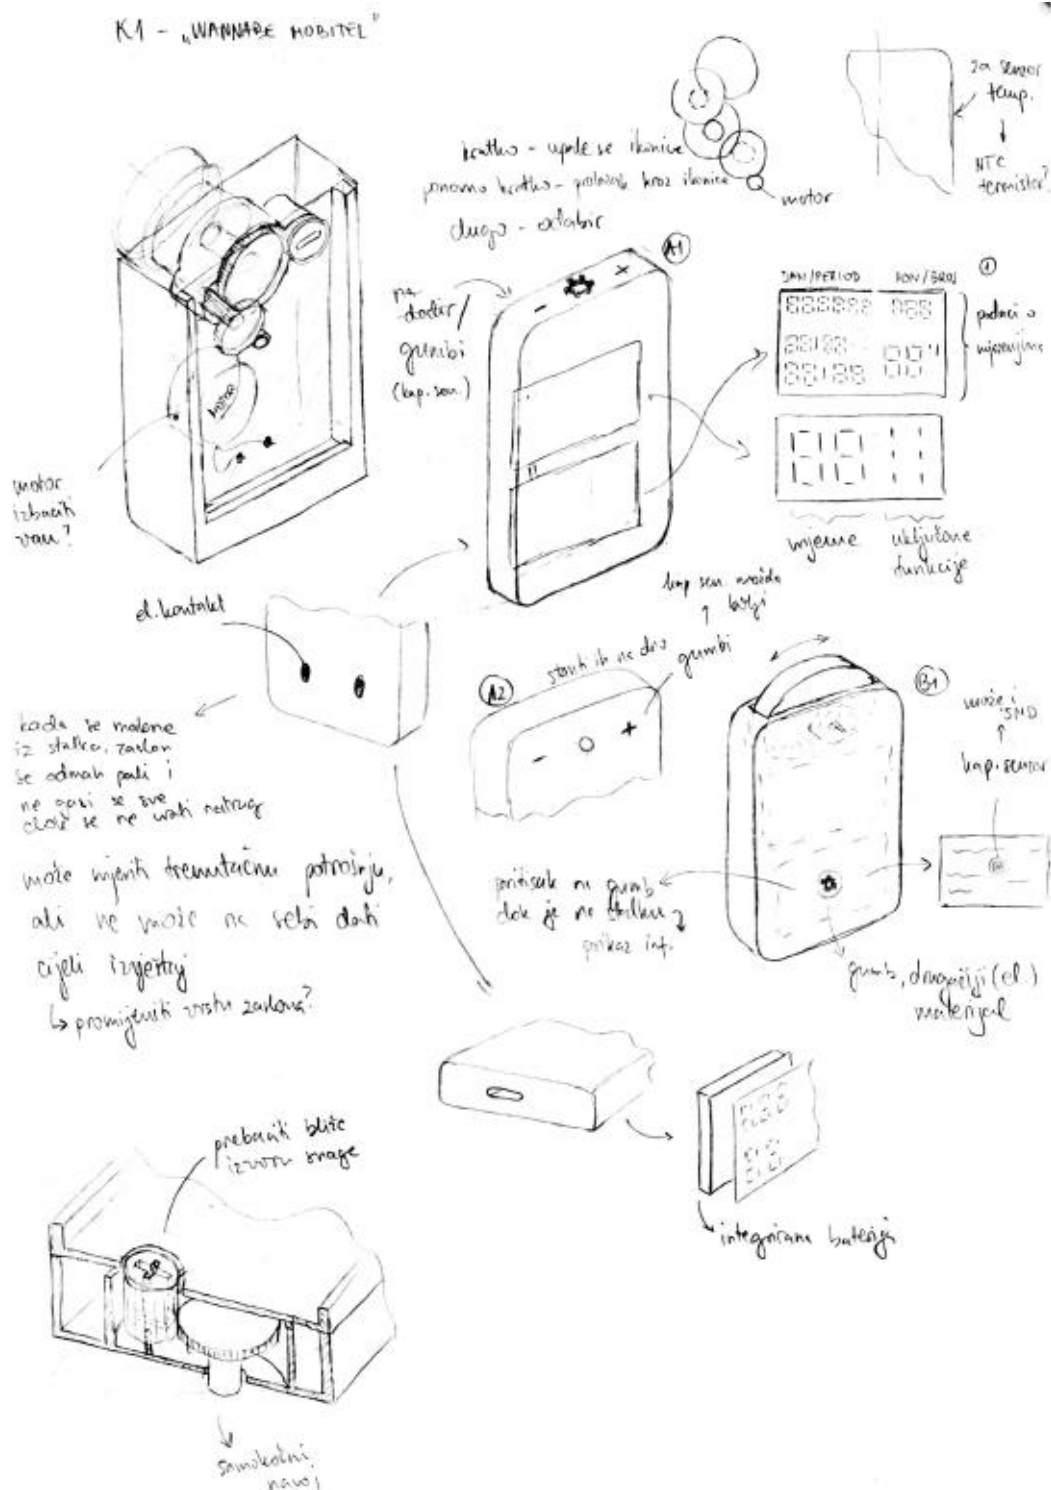 K1 - „WANNABE MOBITEL"
za senzor
temp.
NTC
termistor?
kratko - upale se ikonice
ponovno kratko - prolazak kroz ikonice
dugo - odabir
motor
A1
na
dodir/
gumbi
(kap. sen.)
- +
DAN/PERIOD
KON/BROJ
1
podaci o
mjerenjima
vrijeme
uključene
funkcije
MOTOR
motor
izbaciti
van?
el. kontakt
kada se makne
iz stalka, zaslon
se odmah pali i
ne gasi se sve
dok se ne vrati natrag
može mjeriti trenutačnu potrošnju,
ali ne može na sebi dati
cijeli izvještaj
↳ promijeniti vrstu zaslona?
kap sen možda
bolji
gumbi
staviti ih na dno
A2
- ○ +
B1
može i
SMD
kap. senzor
pritisak na gumb
dok je na stalku
prikaz inf.
gumb, drugačiji (el.)
materijal
prebaciti bliže
izvoru snage
integrirana baterija
samokočni
navoj